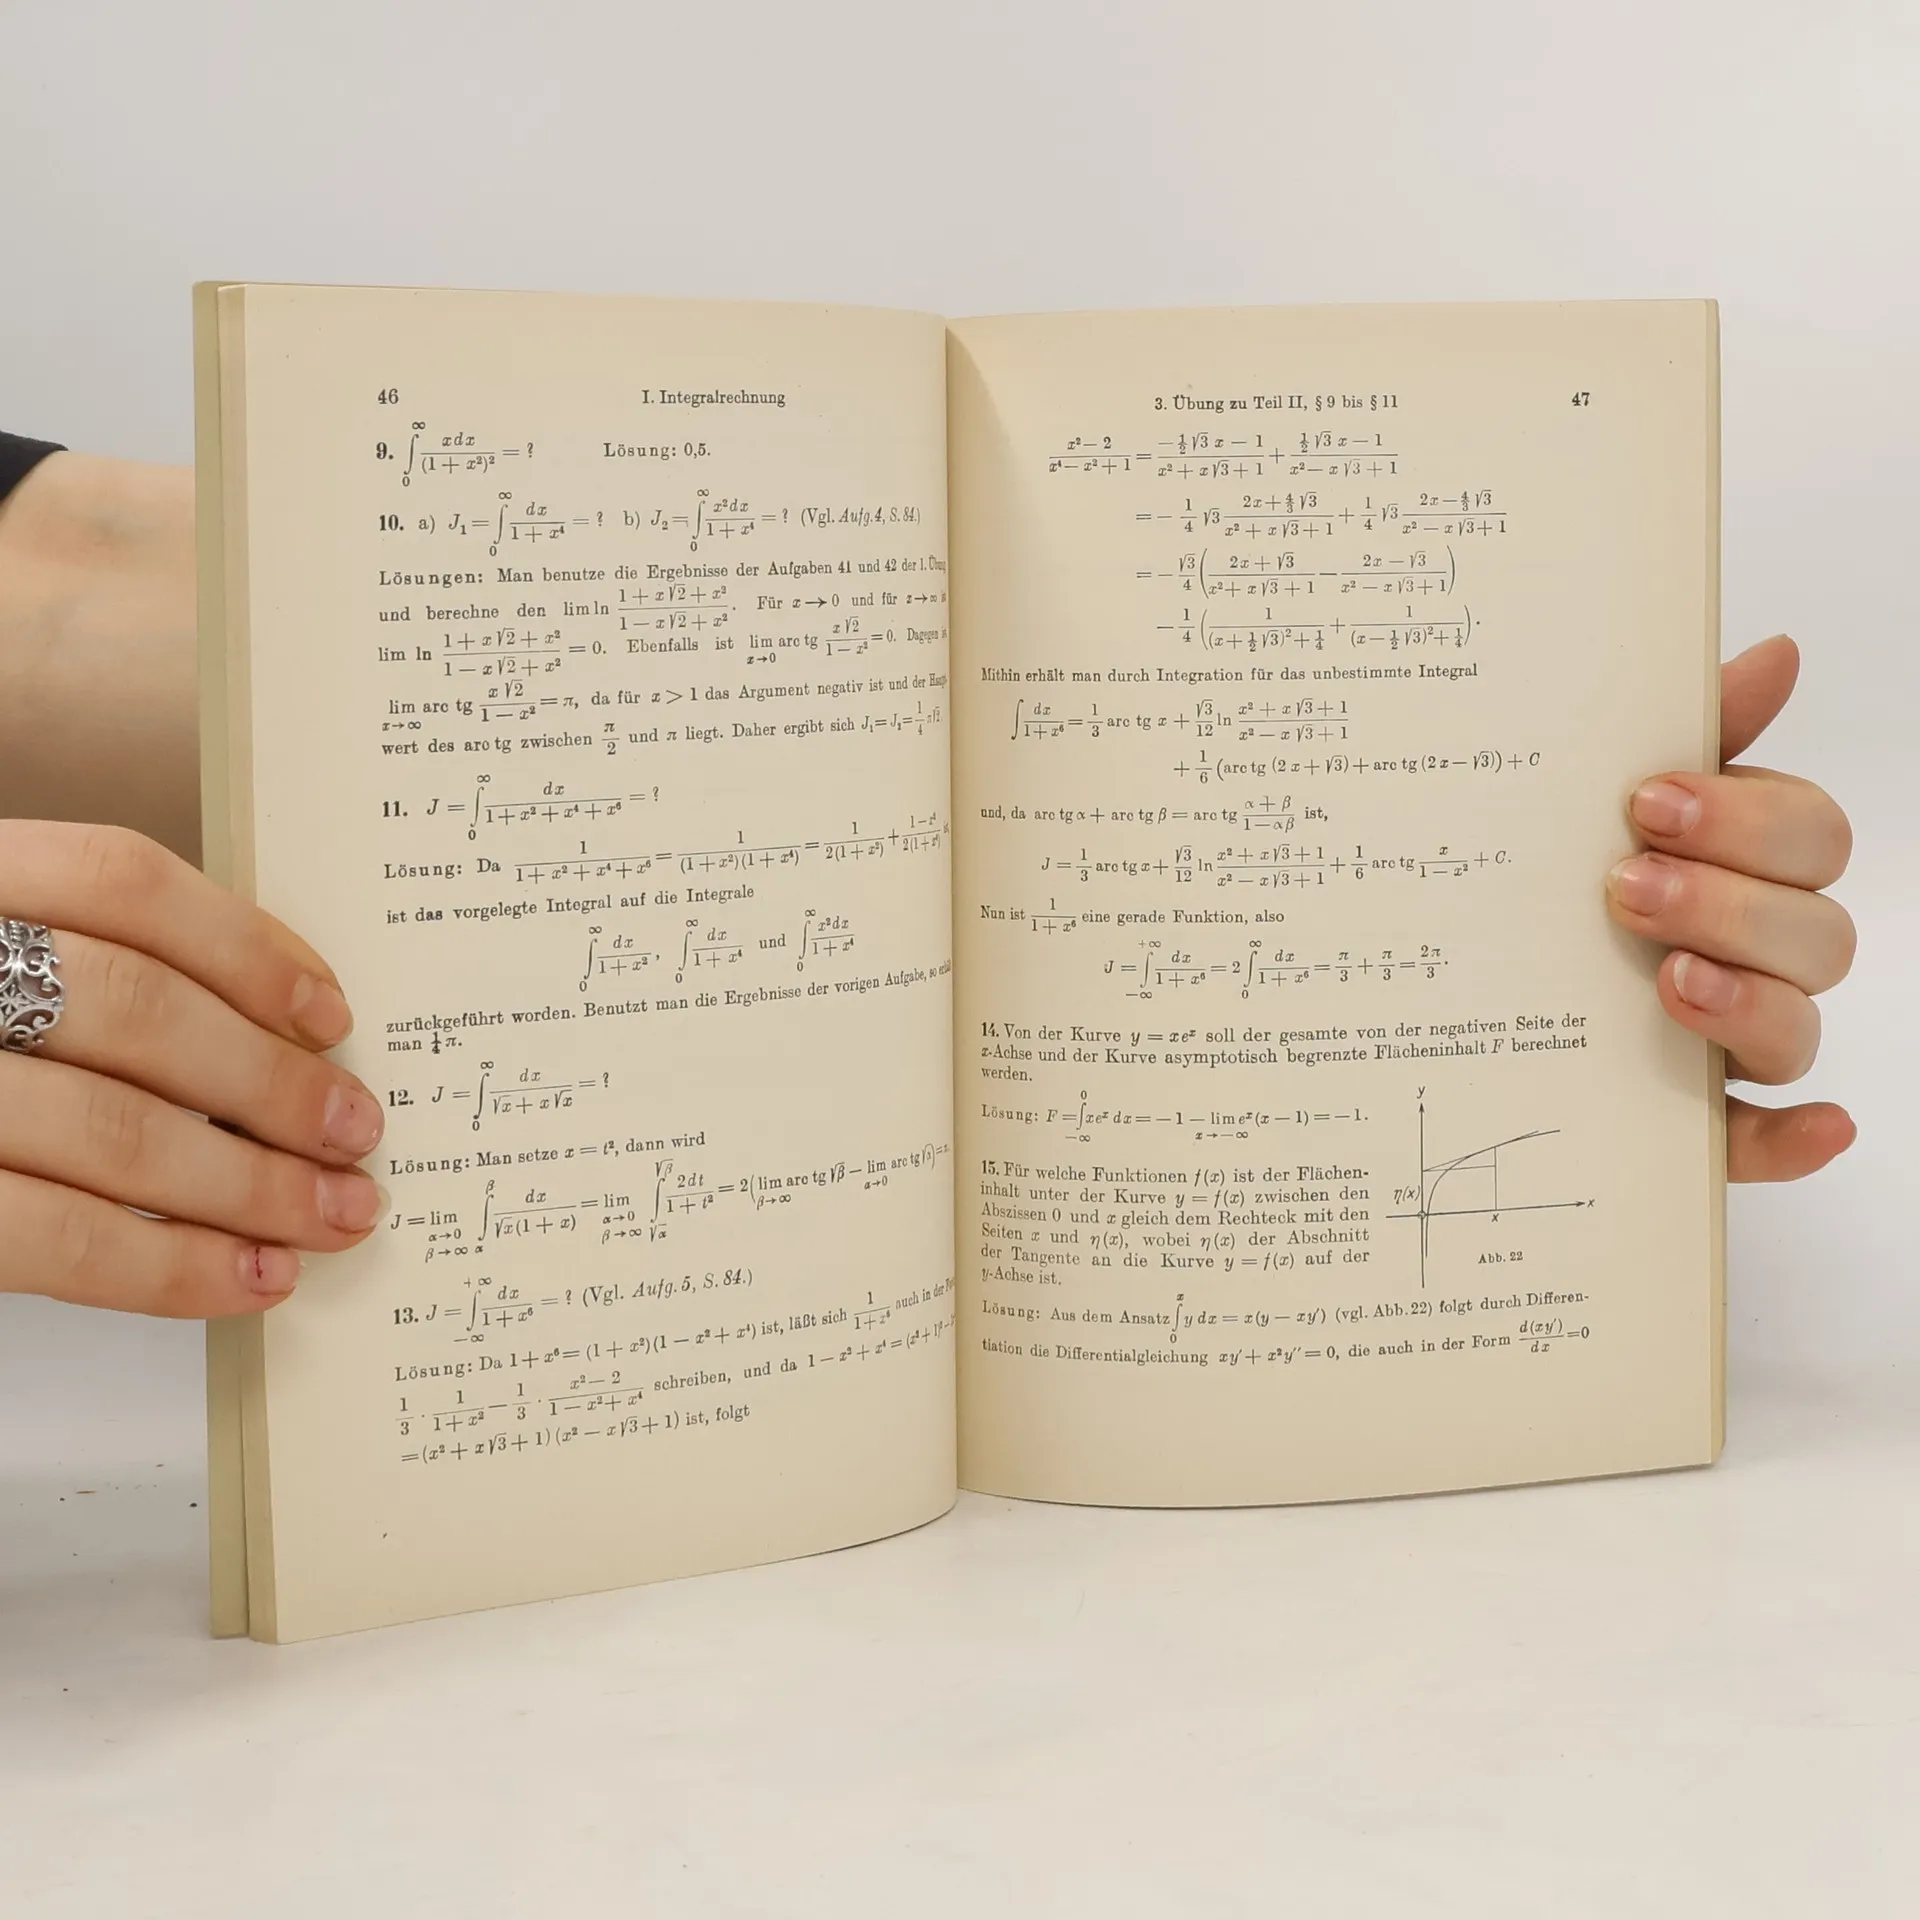 46 I. Integralrechnung
9. ∫₀^∞ xdx/(1 + x²)² = ? Lösung: 0,5.
10. a) J₁ = ∫₀^∞ dx/(1 + x⁴) = ? b) J₂ = ∫₀^∞ x²dx/(1 + x⁴) = ? (Vgl. Aufg. 4, S. 84.)
Lösungen: Man benutze die Ergebnisse der Aufgaben 41 und 42 der 1. Übung
und berechne den lim ln (1 + x√2 + x²)/(1 − x√2 + x²). Für x → 0 und für x → ∞ ist
lim ln (1 + x√2 + x²)/(1 − x√2 + x²) = 0. Ebenfalls ist lim_{x→0} arc tg x√2/(1 − x²) = 0. Dagegen ist
lim_{x→∞} arc tg x√2/(1 − x²) = π, da für x > 1 das Argument negativ ist und der Haupt-
wert des arc tg zwischen π/2 und π liegt. Daher ergibt sich J₁ = J₂ = 1/4 π√2.
11. J = ∫₀^∞ dx/(1 + x² + x⁴ + x⁶) = ?
Lösung: Da 1/(1 + x² + x⁴ + x⁶) = 1/((1 + x²)(1 + x⁴)) = 1/(2(1 + x²)) +
ist das vorgelegte Integral auf die Integrale
∫₀^∞ dx/(1 + x²), ∫₀^∞ dx/(1 + x⁴) und ∫₀^∞ x²dx/(1 + x⁴)
zurückgeführt worden. Benutzt man die Ergebnisse der vorigen Aufgabe, so
man ¼ π.
12. J = ∫₀^∞ dx/(√x + x√x) = ?
Lösung: Man setze x = t², dann wird
J = lim_{α→0, β→∞} ∫_α^β dx/(√x(1 + x)) = lim_{α→0, β→∞} ∫_{√α}^{√β} 2dt/(1 + t²) = 2(lim_{β→∞} arc tg √β − lim_{α→0} arc tg √α) = π.
13. J = ∫_{−∞}^{+∞} dx/(1 + x⁶) = ? (Vgl. Aufg. 5, S. 84.)
Lösung: Da 1 + x⁶ = (1 + x²)(1 − x² + x⁴) ist, läßt sich 1/(1 + x⁶) auch in der
1/3 · 1/(1 + x²) − 1/3 · (x² − 2)/(1 − x² + x⁴) schreiben, und da 1 − x² + x⁴ = (x² + 1)² −
= (x² + x√3 + 1)(x² − x√3 + 1) ist, folgt
3. Übung zu Teil II, § 9 bis § 11 47
(x² − 2)/(x⁴ − x² + 1) = (−½√3 x − 1)/(x² + x√3 + 1) + (½√3 x − 1)/(x² − x√3 + 1)
= − 1/4 √3 (2x + 4/3 √3)/(x² + x√3 + 1) + 1/4 √3 (2x − 4/3 √3)/(x² − x√3 + 1)
= − √3/4 ((2x + √3)/(x² + x√3 + 1) − (2x − √3)/(x² − x√3 + 1))
− 1/4 (1/((x + ½√3)² + ¼) + 1/((x − ½√3)² + ¼)).
Mithin erhält man durch Integration für das unbestimmte Integral
∫ dx/(1 + x⁶) = 1/3 arc tg x + √3/12 ln (x² + x√3 + 1)/(x² − x√3 + 1)
+ 1/6 (arc tg (2x + √3) + arc tg (2x − √3)) + C
und, da arc tg α + arc tg β = arc tg (α + β)/(1 − αβ) ist,
J = 1/3 arc tg x + √3/12 ln (x² + x√3 + 1)/(x² − x√3 + 1) + 1/6 arc tg x/(1 − x²) + C.
Nun ist 1/(1 + x⁶) eine gerade Funktion, also
J = ∫_{−∞}^{+∞} dx/(1 + x⁶) = 2 ∫₀^∞ dx/(1 + x⁶) = π/3 + π/3 = 2π/3.
14. Von der Kurve y = xeˣ soll der gesamte von der negativen Seite der
x-Achse und der Kurve asymptotisch begrenzte Flächeninhalt F berechnet
werden.
Lösung: F = ∫_{−∞}^0 xeˣ dx = −1 − lim_{x→−∞} eˣ(x − 1) = −1.
15. Für welche Funktionen f(x) ist der Flächen-
inhalt unter der Kurve y = f(x) zwischen den
Abszissen 0 und x gleich dem Rechteck mit den
Seiten x und η(x), wobei η(x) der Abschnitt
der Tangente an die Kurve y = f(x) auf der
y-Achse ist.
y
η(x)
x
x
Abb. 22
Lösung: Aus dem Ansatz ∫₀^x y dx = x(y − xy′) (vgl. Abb. 22) folgt durch Differen-
tiation die Differentialgleichung xy′ + x²y″ = 0, die auch in der Form d(xy′)/dx = 0